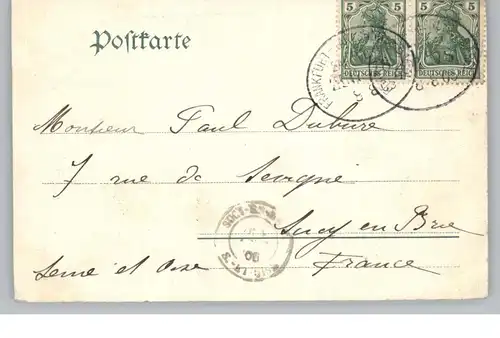 5 5
Postkarte
DEUTSCHES REICH DEUTSCHES REICH
FRANKFURT
Monsieur Paul Dubure
7 rue de Sevigné
Sucy en Brie
Seine et Oise France